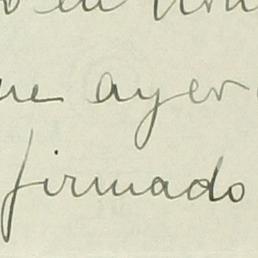 ue ayer
firmado